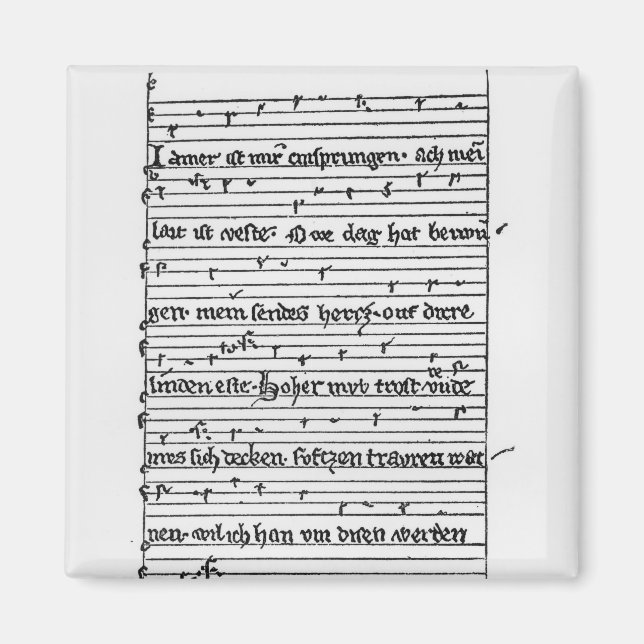 Jamer ist mir entsprungen. Ach mei
lait ist veste. O we dag hat bewu
gen. mein sendes hercz. out durre
linden este. Hoher mut trost
mus sich decken. softzen trauren wai
nen. wil ich han vm disen werden